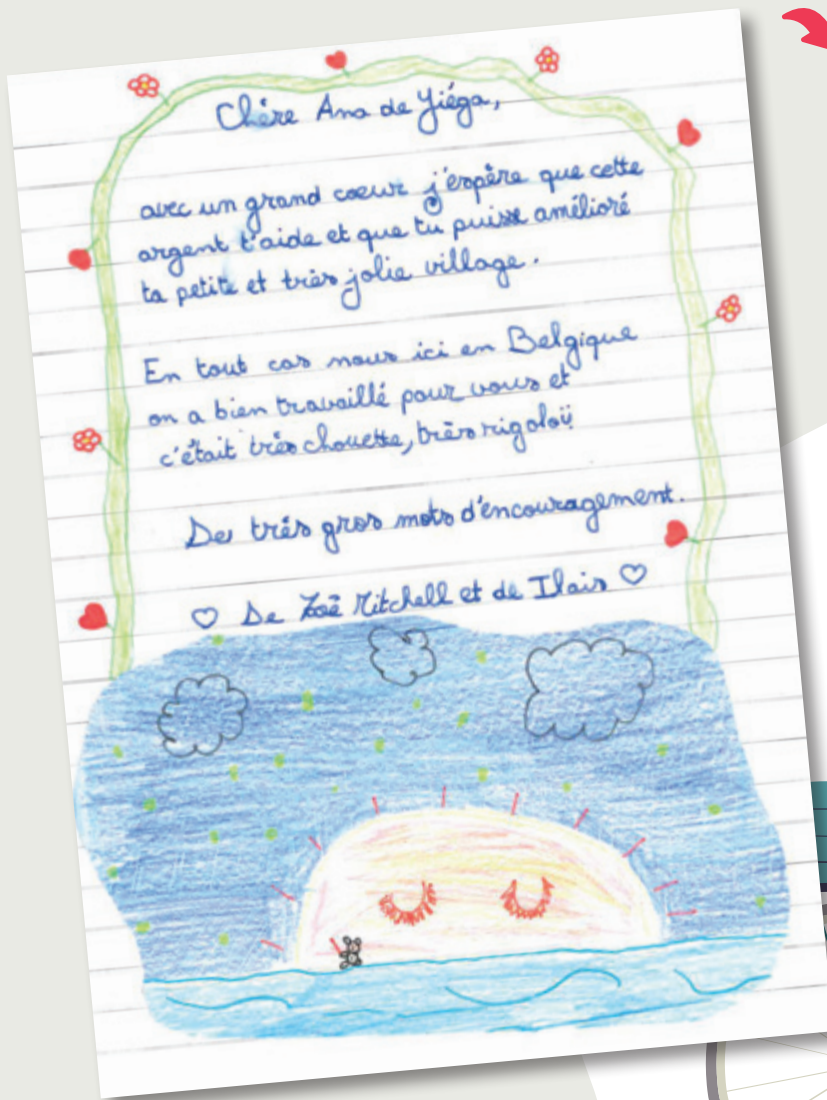 Chère Ana de Yiéga,
avec un grand coeur j'espère que cette
argent t'aide et que tu puisse amélioré
ta petite et très jolie village.
En tout cas nous ici en Belgique
on a bien travaillé pour vous et
c'était très chouette, très rigoloü
Des très gros mots d'encouragement.
De Zoë Mitchell et de Ilais